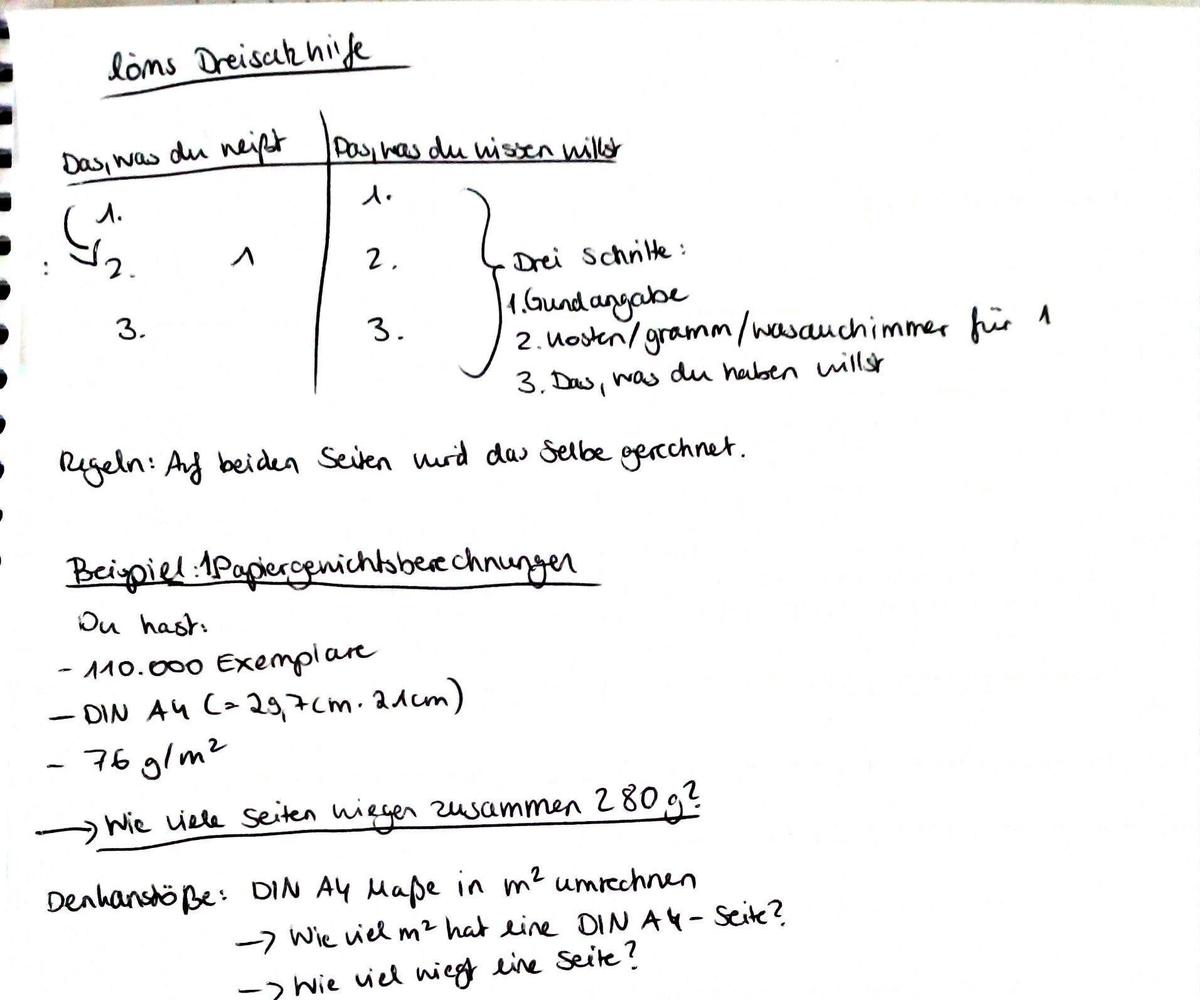 löms Dreisatzhilfe
Das, was du weißt
Das, was du wissen willst
1.
1.
: 2. 1
2.
3.
3.
Drei Schritte:
1. Gundangabe
2. Kosten/gramm/wasauchimmer für 1
3. Das, was du haben willst
Regeln: Auf beiden Seiten wird das Selbe gerechnet.
Beispiel: 1Papiergewichtsberechnungen
Du hast:
- 110.000 Exemplare
- DIN A4 (= 29,7cm · 21cm)
- 76 g/m²
→ Wie viele Seiten wiegen zusammen 280 g?
Denkanstöße: DIN A4 Maße in m² umrechnen
→ Wie viel m² hat eine DIN A4-Seite?
→ Wie viel wiegt eine Seite?